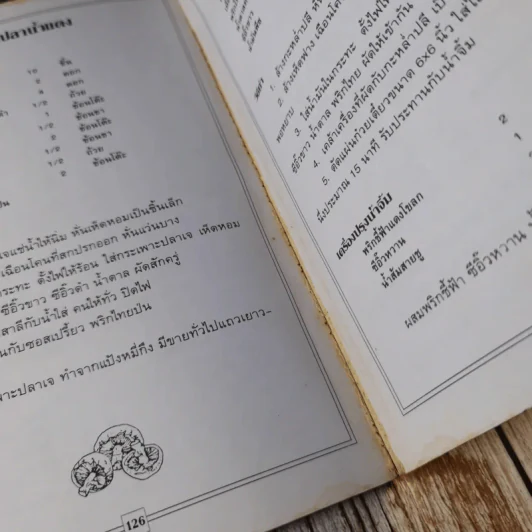 ปลาน้ำแดง
10 ชิ้น
2 ดอก
4 ดอก
1/2 ถ้วย
1 ช้อนโต๊ะ
1/2 ช้อนชา
2 ช้อนโต๊ะ
1/2 ช้อนชา
1/2 ถ้วย
2 ช้อนโต๊ะ
เจแช่น้ำให้นิ่ม หั่นเห็ดหอมเป็นชิ้นเล็ก
เฉือนโคนที่สกปรกออก หั่นแว่นบาง
กระทะ ตั้งไฟให้ร้อน ใส่กระเพาะปลาเจ เห็ดหอม
ซีอิ๊วขาว ซีอิ๊วดำ น้ำตาล ผัดสักครู่
สาลีกับน้ำใส่ คนให้ทั่ว ปิดไฟ
กับซอสเปรี้ยว พริกไทยป่น
เพาะปลาเจ ทำจากแป้งหมี่กึง มีขายทั่วไปแถวเยาว-
126
1. ล้างกะหล่ำปลี
2. ล้างเห็ดฟาง เฉือนโคน
3. ใส่น้ำมันในกระทะ ตั้งไฟให้
ซีอิ๊วขาว น้ำตาล พริกไทย ผัดให้เข้ากัน
4. เคล้าเครื่องที่ผัดกับกะหล่ำปลี
5. ตัดแผ่นก๋วยเตี๋ยวขนาด 6x6 นิ้ว ใส่
นึ่งประมาณ 15 นาที รับประทานกับน้ำจิ้ม
เครื่องปรุงน้ำจิ้ม
พริกชี้ฟ้าแดงโขลก 2
ซีอิ๊วหวาน 1
น้ำส้มสายชู
ผสมพริกชี้ฟ้า ซีอิ๊วหวาน